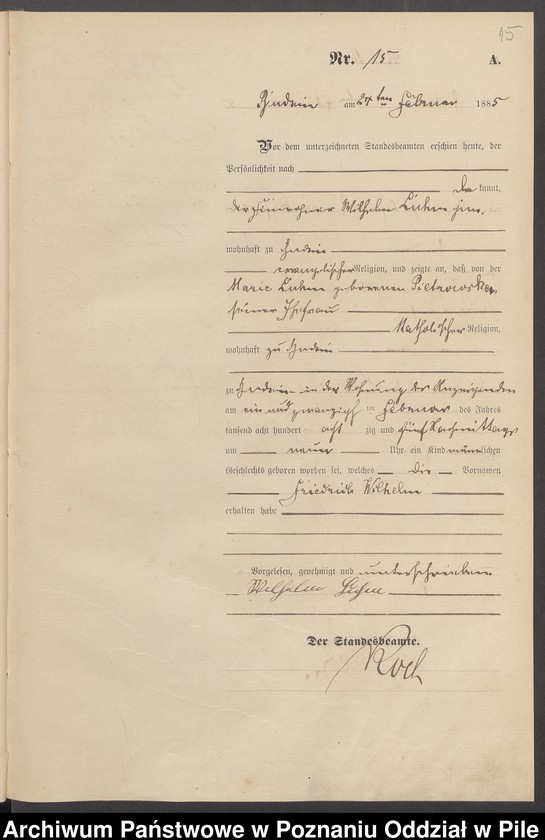 15
Nr. 15 A.
am 24 ten Februar 1885
Vor dem unterzeichneten Standesbeamten erschien heute, der
Persönlichkeit nach
be kannt,
der Einwohner Wilhelm jun.
wohnhaft zu
evangelischer Religion, und zeigte an, daß von der
Marie geborenen Pietrowska,
seiner Ehefrau
Katholischer Religion,
wohnhaft zu
zu in der Wohnung des Anzeigenden
am ein und zwanzigsten ten Februar des Jahres
tausend acht hundert acht zig und fünf Nachmittags
um neun Uhr ein Kind männlichen
Geschlechts geboren worden sei, welches die Vornamen
Friedrich Wilhelm
erhalten habe
Vorgelesen, genehmigt und unterschrieben
Wilhelm
Der Standesbeamte.
Koch
Archiwum Państwowe w Poznaniu Oddział w Pile